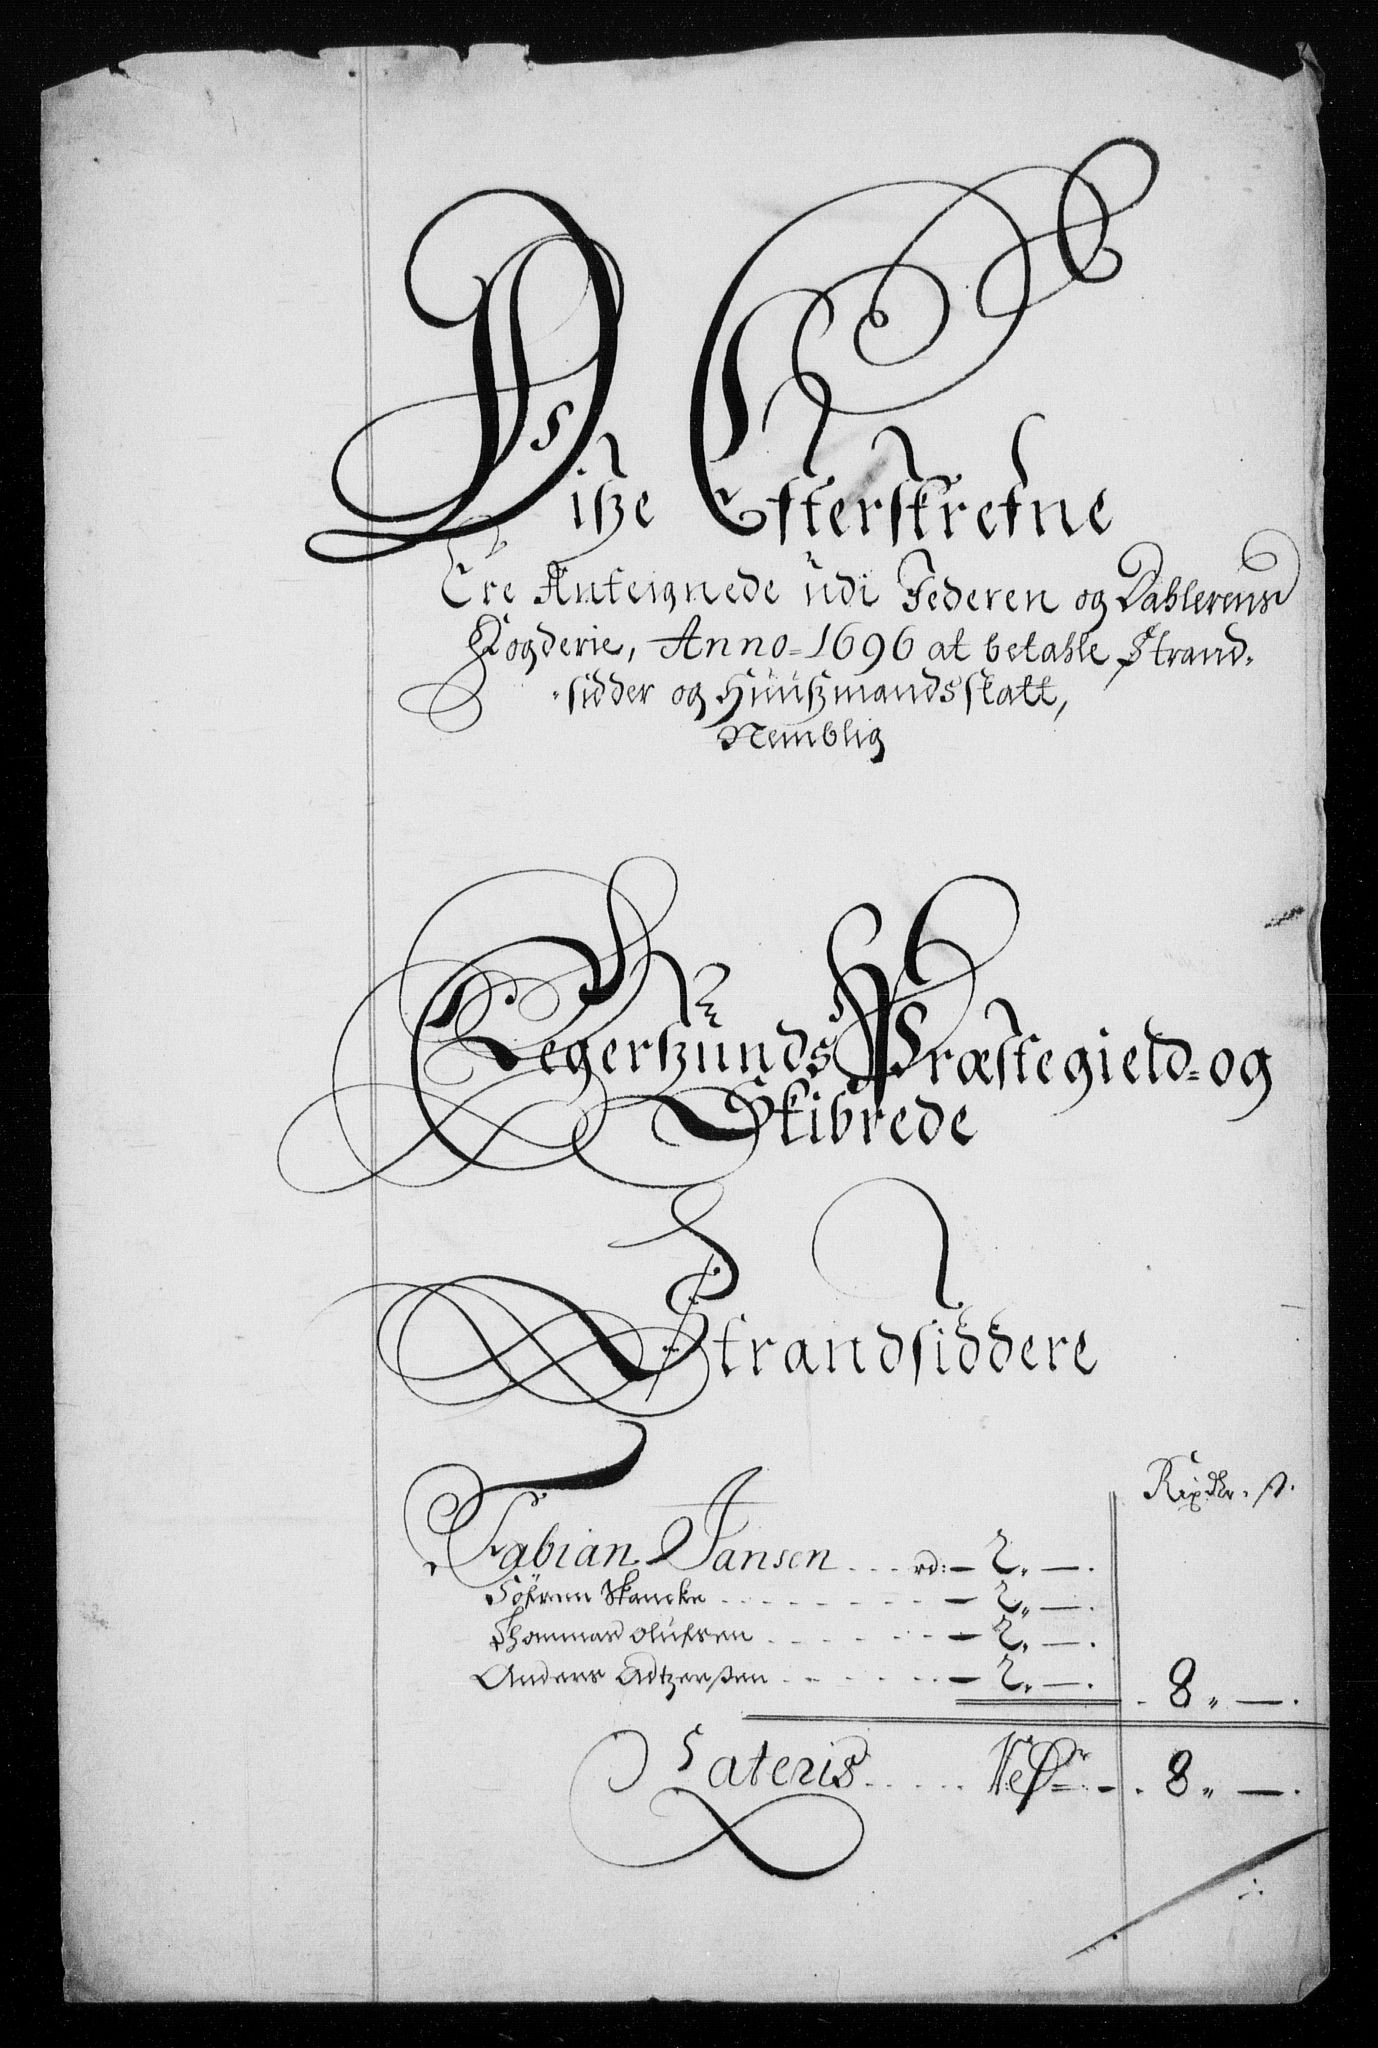 Diße Efterskrefne
Ere Anteignede udi Jederen og Dahlerens
Fogderie, Anno 1696 at betahle Strand-
sidder og Huußmands skatt,
Nemblig
Egerßunds Præstegield og
Skibrede
Strandsiddere
Rixdlr. ß.
Fabian Jansen . . . rd: – 2. –.
Söfren Skancke . . . . . . . – 2. –.
Thommas Olufsen . . . . . – 2. –.
Anders Adtzerßen . . . . . – 2. –. . 8. –.
Lateris . . . . . – . 8. –.